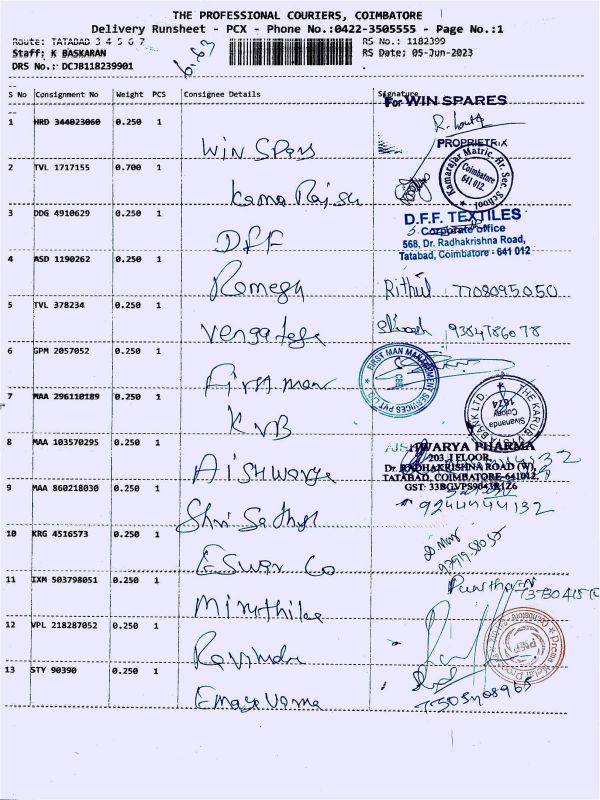 THE PROFESSIONAL COURIERS, COIMBATORE
Delivery Runsheet - PCX - Phone No.:0422-3505555 - Page No.:1
Route: TATABAD 3 4 5 6 7
RS No.: 1182399
Staff: K BASKARAN
RS Date: 05-Jun-2023
DRS No.: DCJB118239901
S No Consignment No Weight PCS Consignee Details Signature
For WIN SPARES
1 HRD 344023060 0.250 1
PROPRIETRIX
Win Spars
2 TVL 1717155 0.700 1
Kamarajar Matric. Hr. Sec. School
Coimbatore 641 012.
3 DDG 4910629 0.250 1
D.F.F. TEXTILES
Corporate Office
568, Dr. Radhakrishna Road,
Tatabad, Coimbatore - 641 012
DFF
4 ASD 1190262 0.250 1
Ramesh
Rithul 7708095050
5 TVL 378234 0.250 1
9384786078
6 GPM 2057052 0.250 1
FIRST MAN MANAGEMENT SERVICES PVT LTD
CBE
First man
7 MAA 296110189 0.250 1
THE KARUR VYSYA BANK LTD.
Sivananda Colony
1674
KVB
8 MAA 103570295 0.250 1
AISHWARYA PHARMA
203, I FLOOR,
Dr. RADHAKRISHNA ROAD (W),
TATABAD, COIMBATORE-641012.
Aishwarya
9 MAA 860218030 0.250 1
9244444132
Shri Sathya
10 KRG 4516573 0.250 1
Eswar Co
11 IXM 503798051 0.250 1
Miruthika
12 VPL 218287052 0.250 1
Ravindra
13 STY 90390 0.250 1